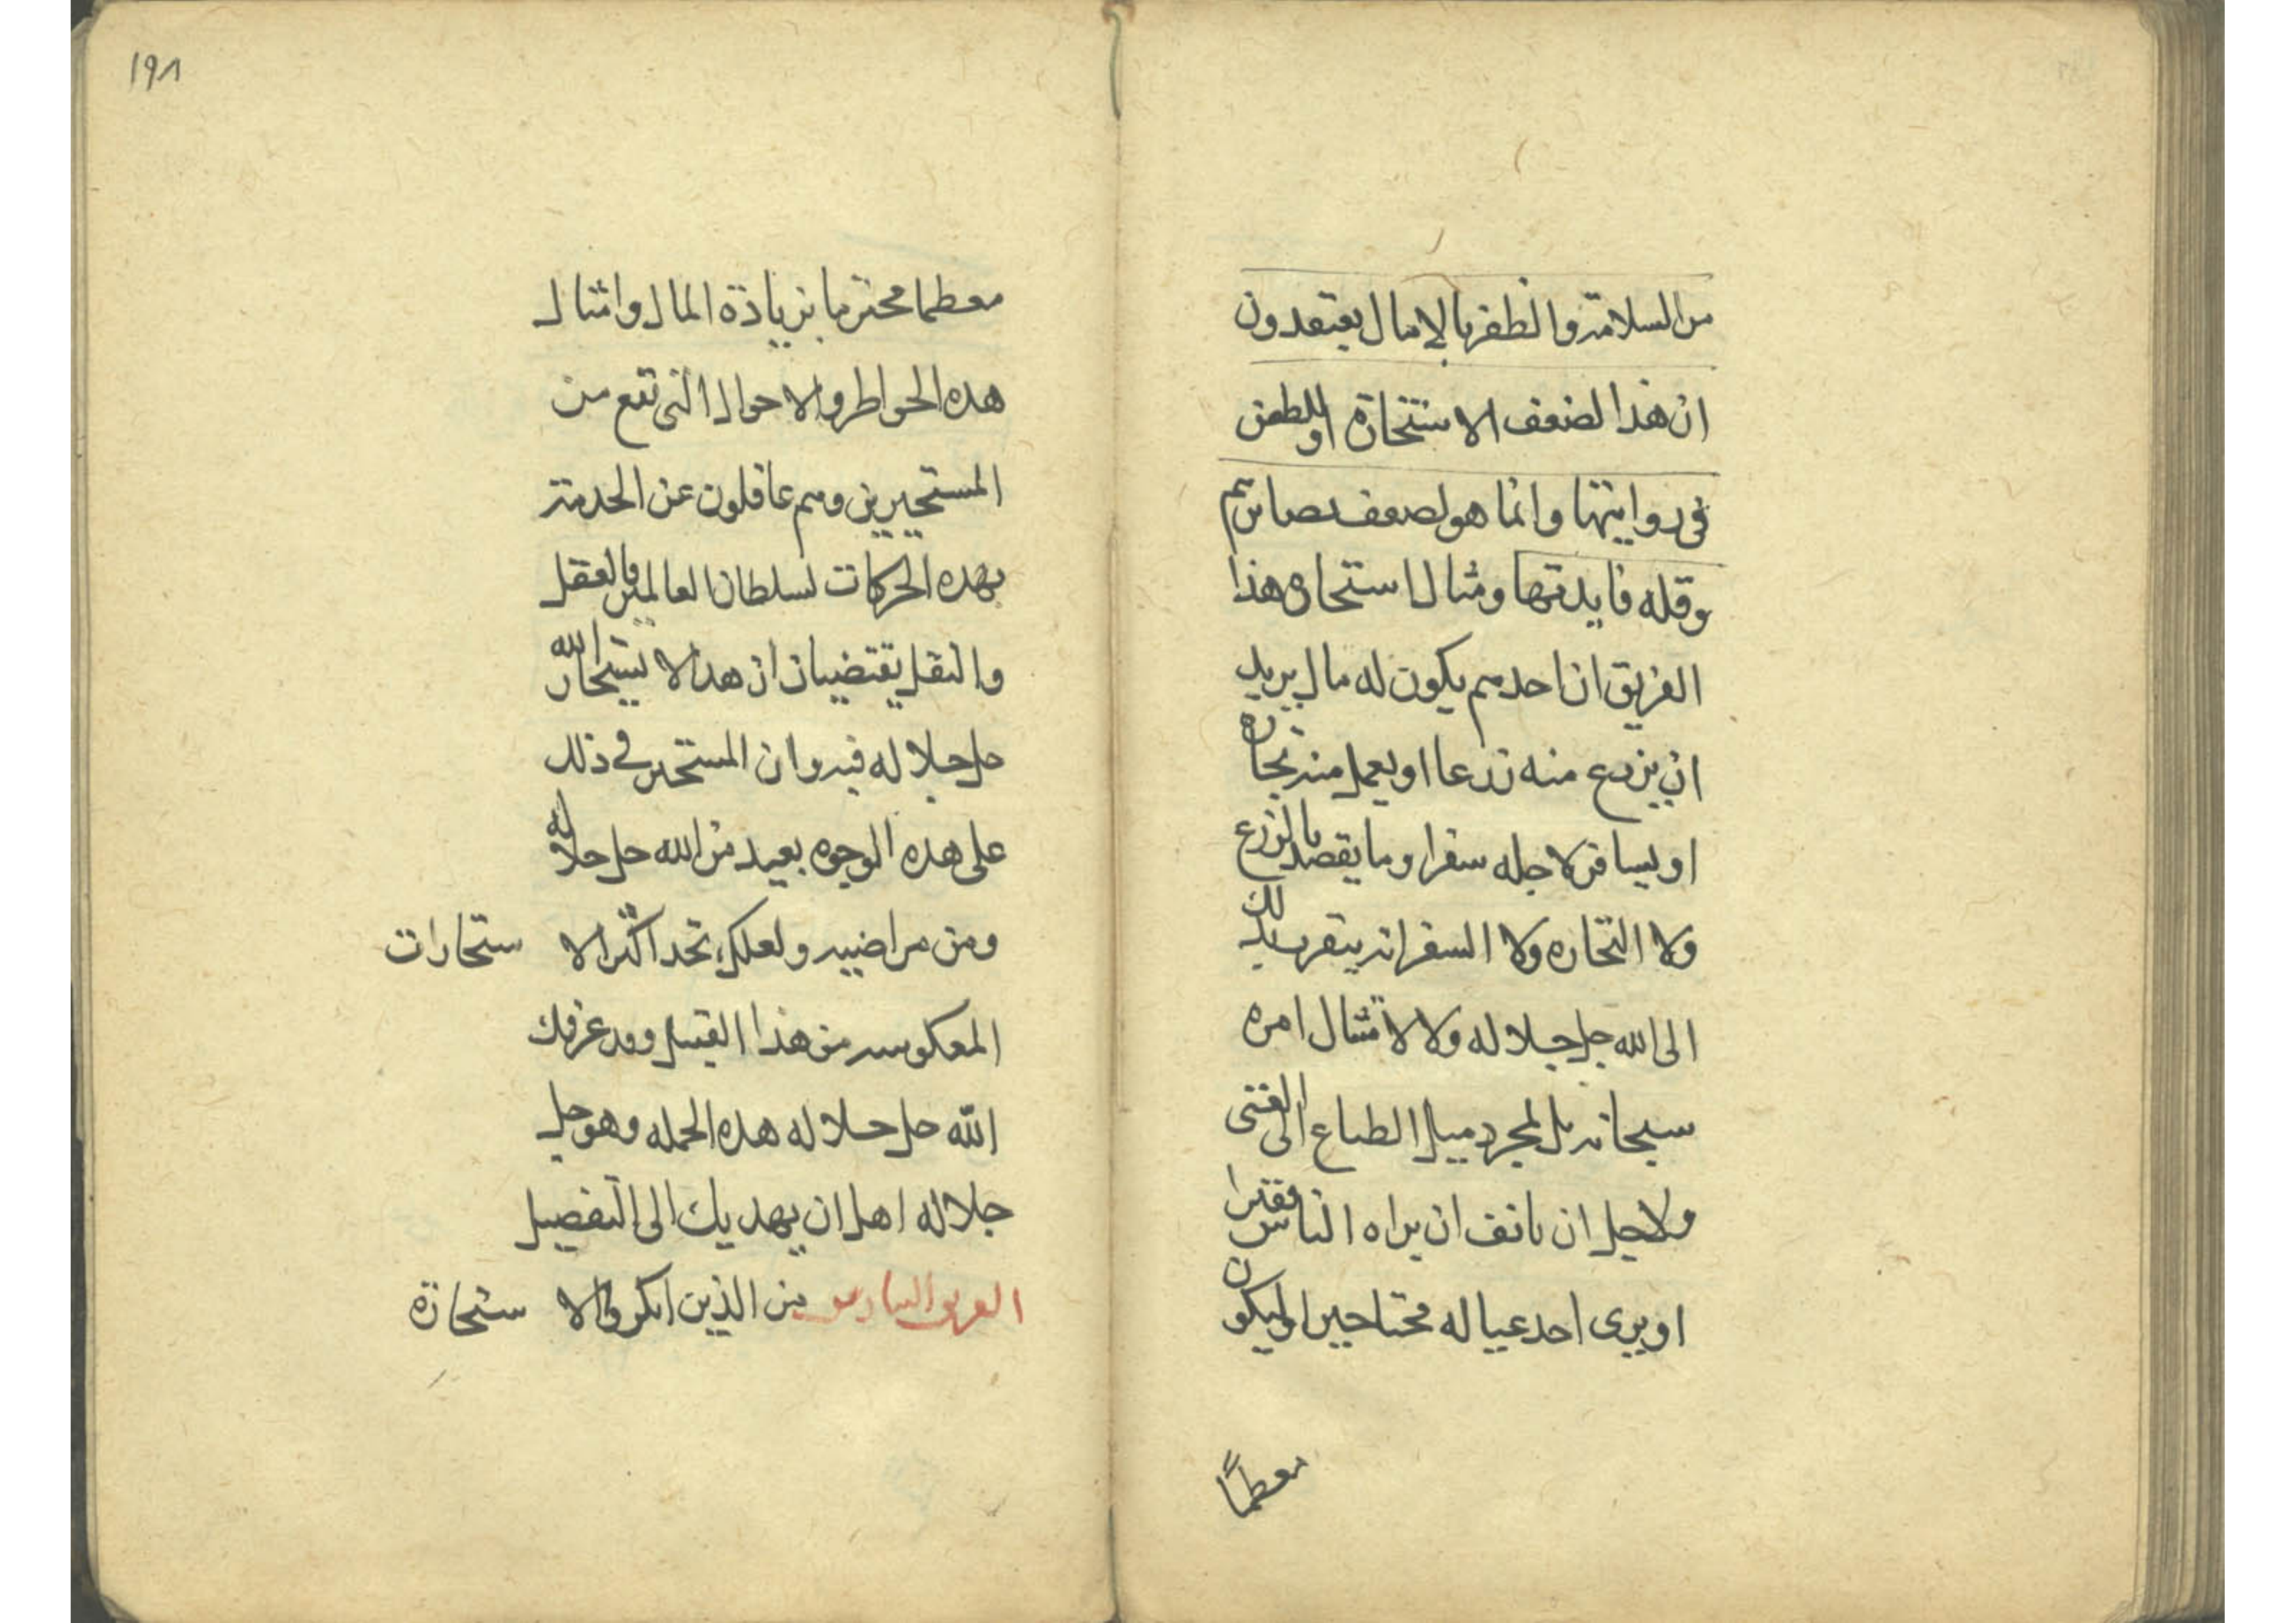 من السلامة والظفر بالامال يعتقدون
ان هذا لضعف الاستخارة او للطعن
فى روايتها وانما هو لضعف بصايرهم
وقله فايدتها ومثال استخاره هذا
الفريق ان احدهم يكون له مال يريد
ان يزرع منه زرعا او يعمل منه تجاره
او يسافر لاجله سفرا وما يقصد بالزرع
ولا التجاره ولا السفر انه يتقرب بذلك
الى الله جل جلاله ولا لامتثال امره
سبحانه بل لمجرد ميل الطباع الى الغنى
ولاجل ان يانف ان يراه الناس فقيرا
او يرى احد عياله محتاجين او ليكون
معظمًا
١٩٨
معظما محترما بزيادة المال وامثال
هذه الخواطر والاحوال التى تقع من
المستخيرين وهم غافلون عن الخدمة
بهذه الحركات لسلطان العالمين والعقل
والنقل يقتضيان ان هذا لا يستخار الله
جل جلاله فيه وان المستخير فى ذلك
على هذه الوجوه بعيد من الله جل جلاله
ومن مراضيه ولعلك تجد اكثر الاستخارات
المعكوسه من هذا القبيل وقد عرفك
الله جل جلاله هذه الجمله وهو جل
جلاله اهل ان يهديك الى التفصيل
الفريق السادس من الذين انكروا الاستخارة